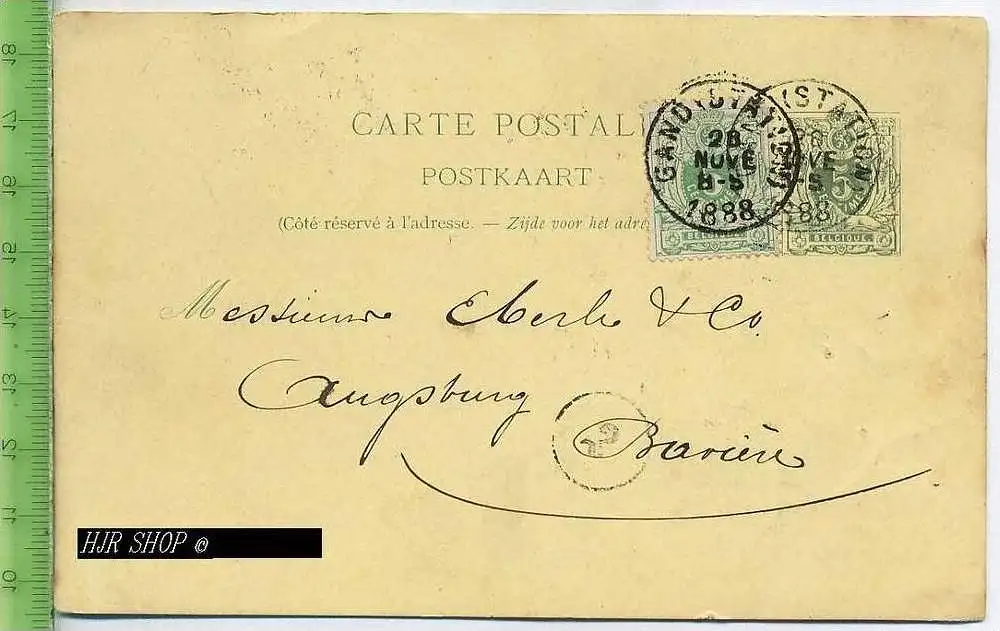 CARTE POSTAL
POSTKAART
(Côté réservé à l'adresse. — Zijde voor het adre
GAND (STATION)
28
NOVE
8-S
1888
(STATION)
28
VE
-S
88
5
BELGIQUE
BELGIQUE
Messieurs Eberle & Co.
Augsburg
Bavière
HJR SHOP ©
18
17
16
15
14
13
12
11
10